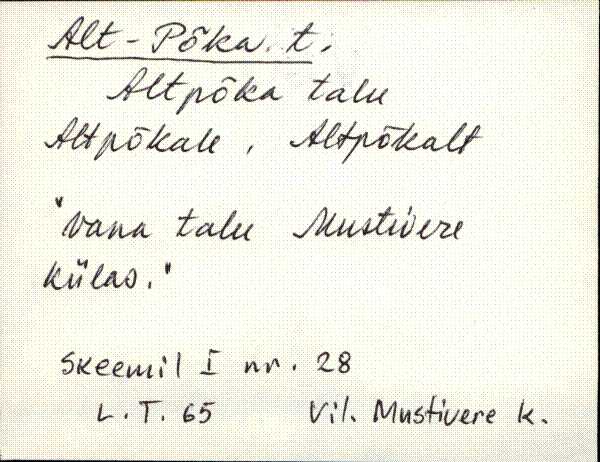 Alt-Põka. t.
Altpõka talu
Altpõkale, Altpõkalt
"Vana talu Mustivere
külas."
Skeemil I nr. 28
L. T. 65 Vil. Mustivere k.